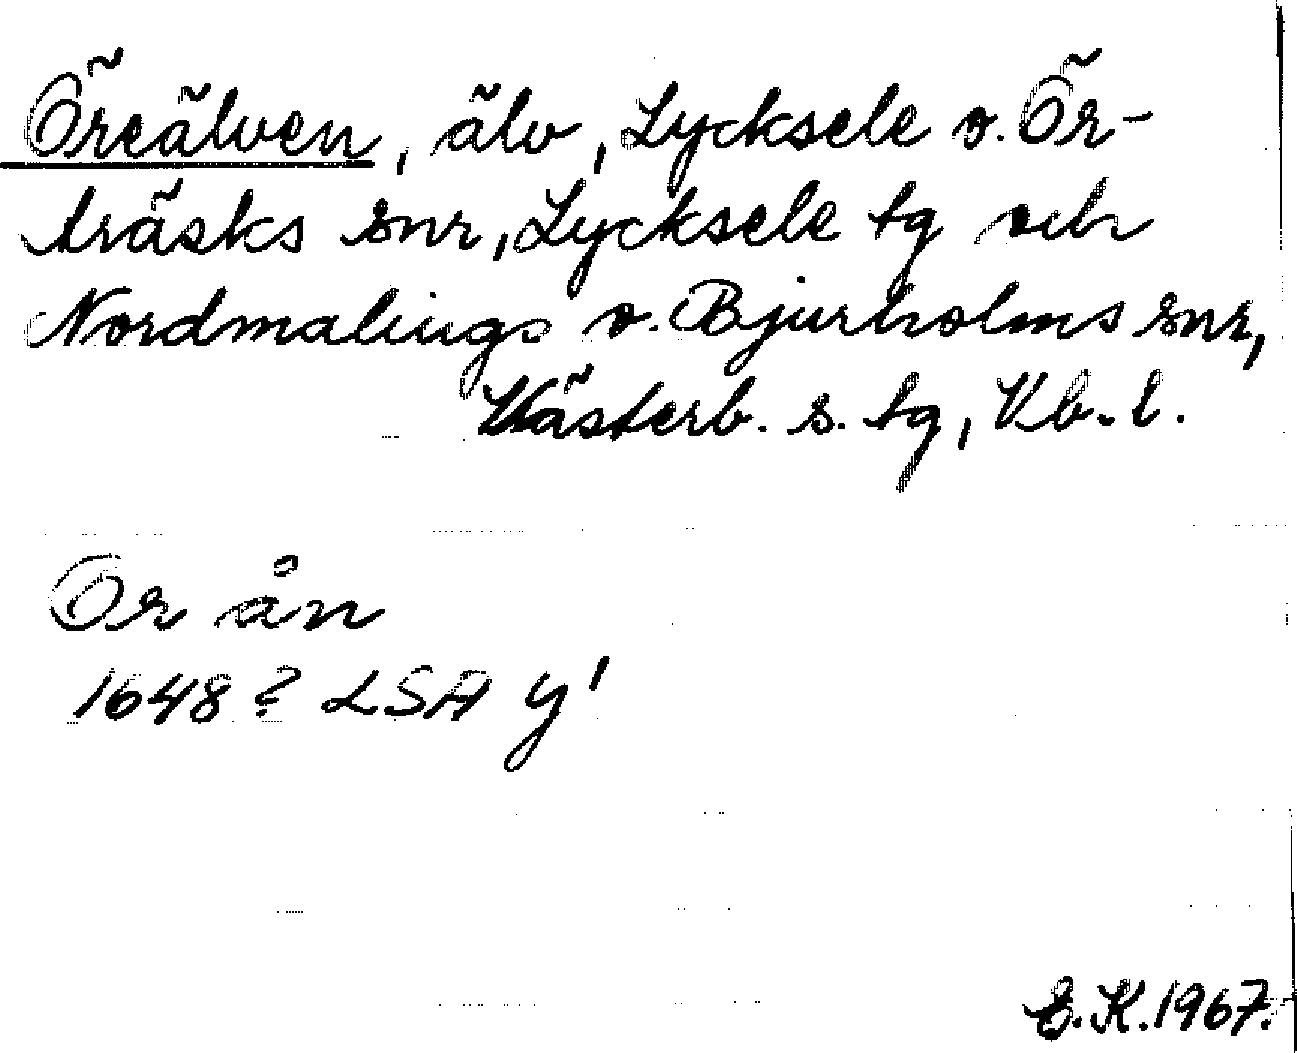 Öreälven, älv, Lycksele o. Ör-
träsks snr, Lycksele tg och
Nordmalings o. Bjurholms snr,
Västerb. s. tg, Vb. l.
Or ån
1648? LSA y'
E.K.1967.